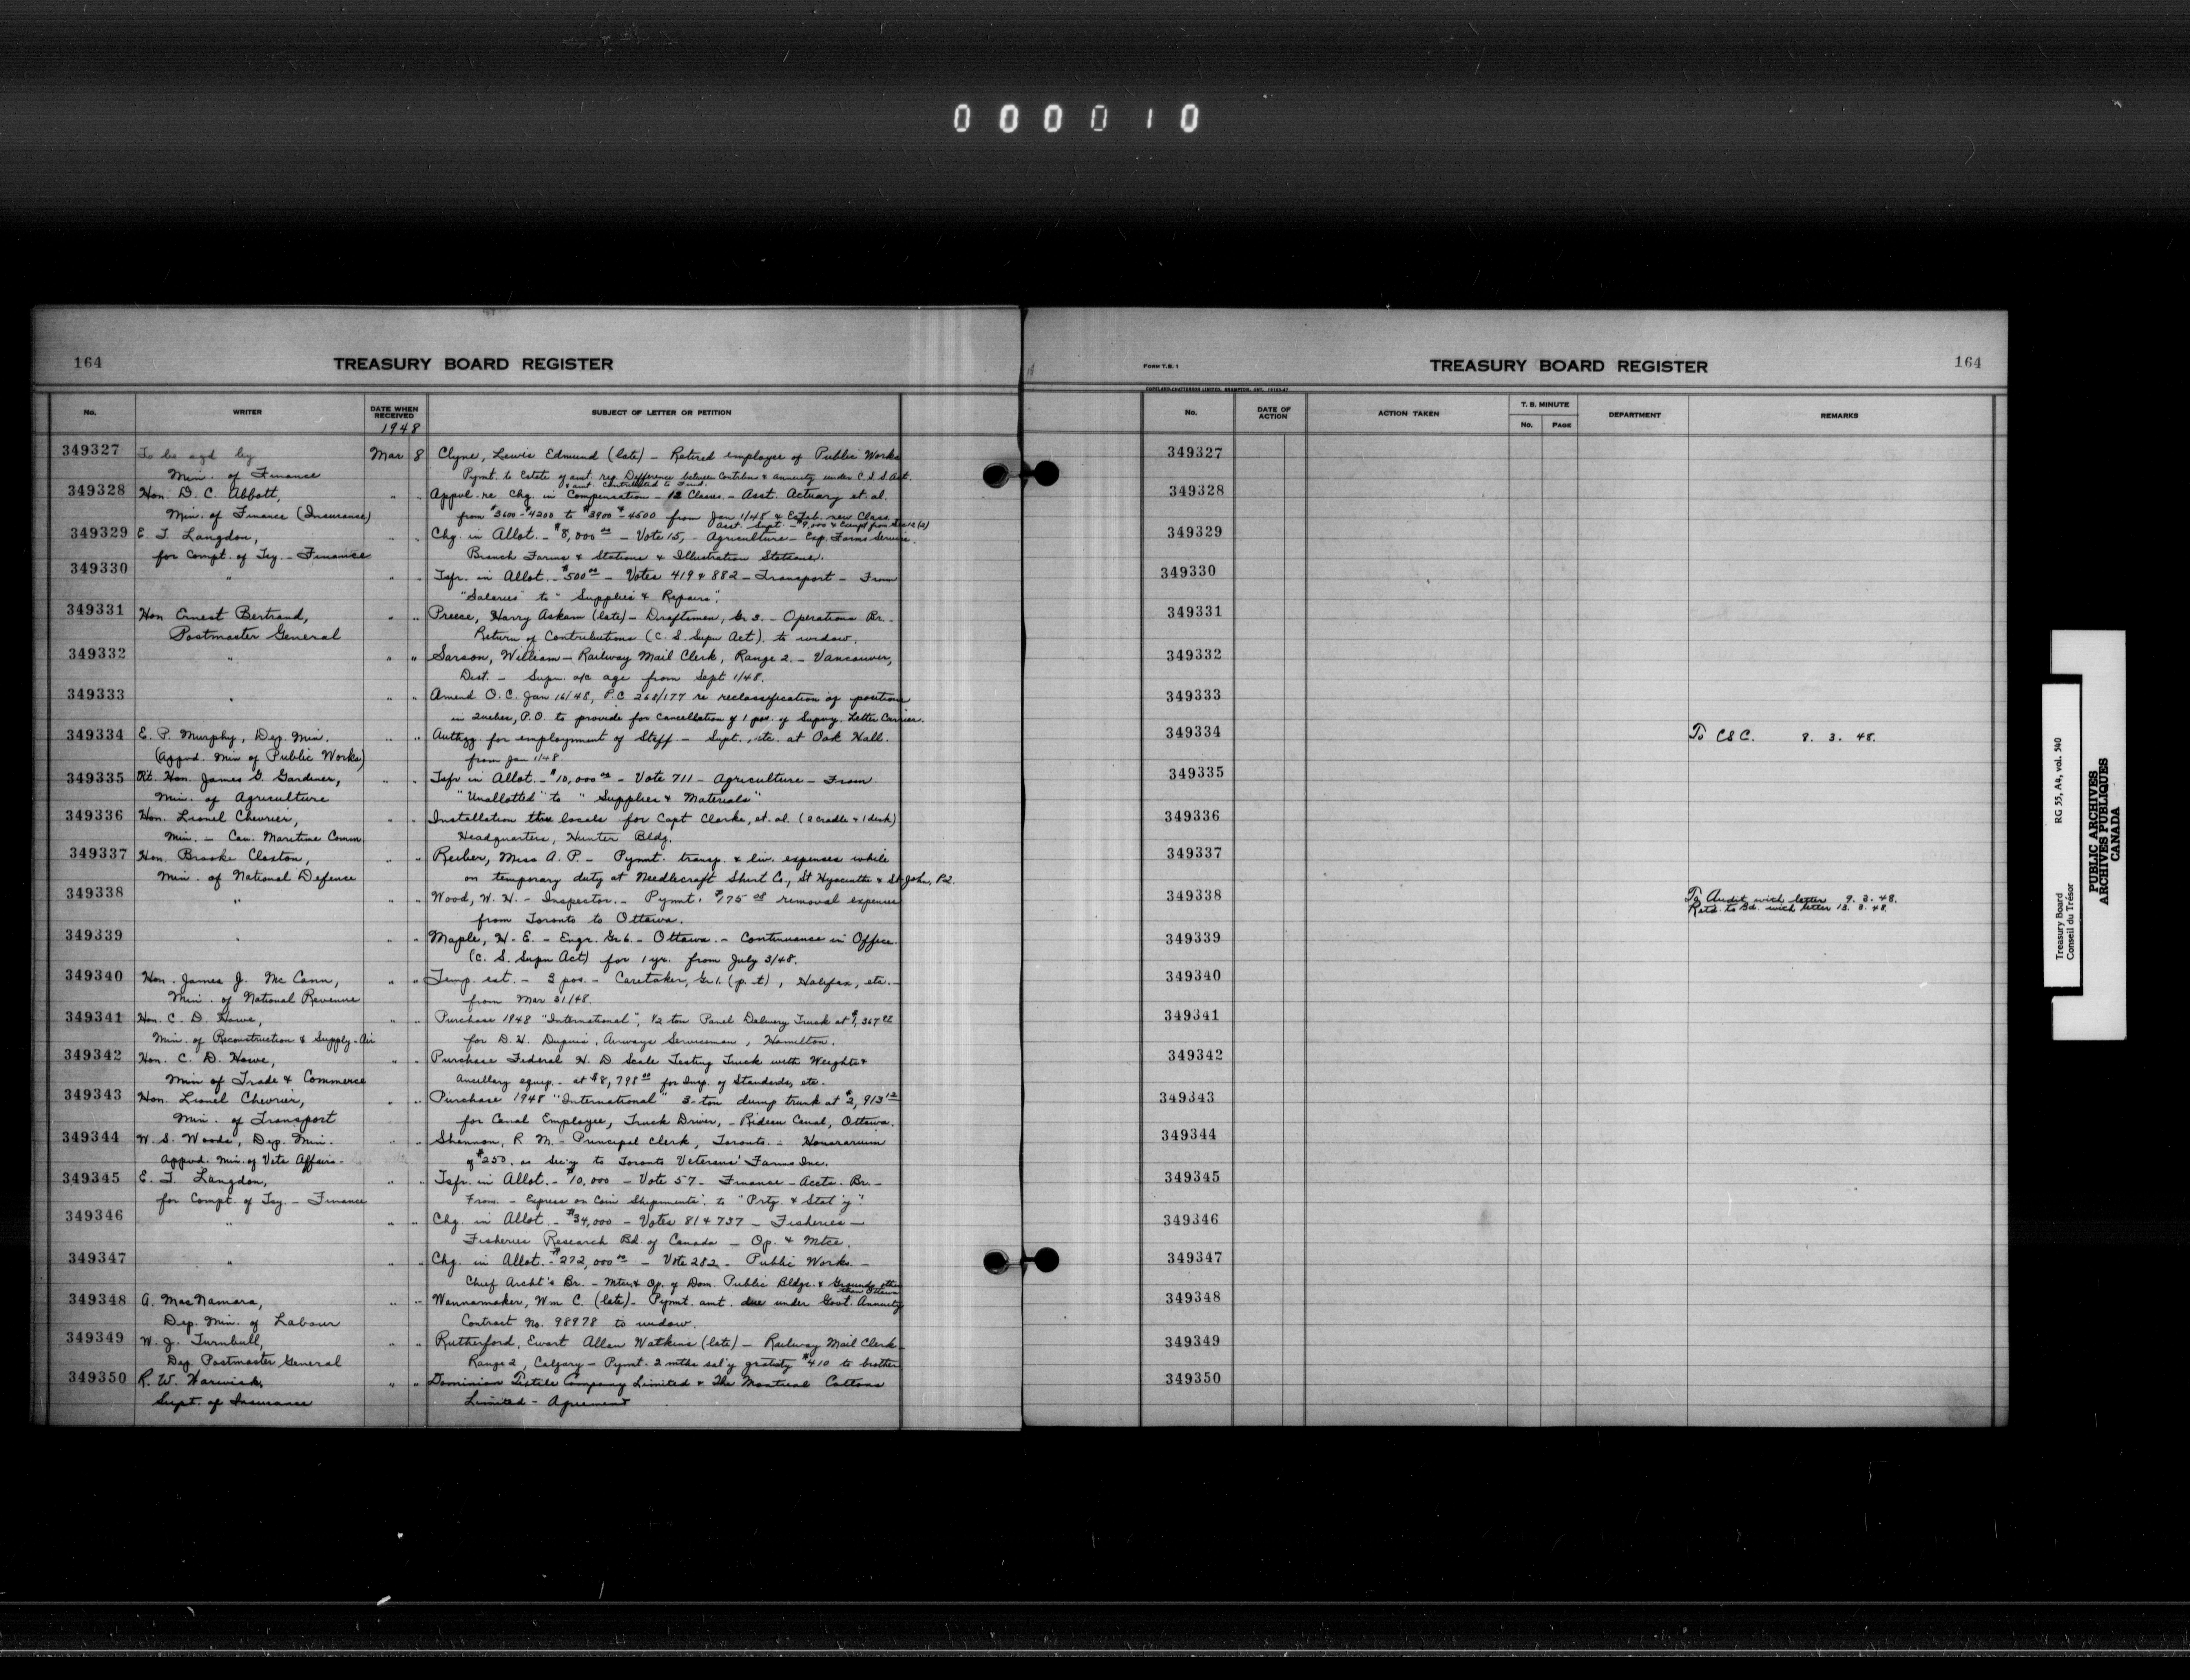 000010
164
TREASURY BOARD REGISTER
No.
WRITER
DATE WHEN RECEIVED
SUBJECT OF LETTER OR PETITION
1948
349327 To be sgd by Mar 8 Clyne, Lewis Edmund (late) - Retired employee of Public Works
Min. of Finance Pymt. to Estate of amt. rep. Difference between Contribns & annuity under C.S.S. Act.
& amt. contributed to Fund.
349328 Hon. D. C. Abbott, " " Appvl. re Chg. in Compensation - 12 Classes - Asst. Actuary et. al.
Min. of Finance (Insurance) from $3600-$4200 to $3900-$4500 from Jan 1/48 & Estab. new Class
Asst. Supt. - $9,000 & Exempt from Sec 12 (2)
349329 E. T. Langdon, " " Chg. in Allot. - $8,000 00 - Vote 15, - Agriculture - Exp. Farms Service.
for Compt. of Tsy. - Finance Branch Farms & Stations & Illustration Stations.
349330 " " " Tsfr. in Allot. - $500 00 - Votes 419 & 882 - Transport - From
"Salaries" to "Supplies & Repairs".
349331 Hon Ernest Bertrand, " " Preece, Harry Askam (late) - Draftsman, Gr 3. - Operations Br. -
Postmaster General Return of Contributions (C. S. Supn Act). to widow.
349332 " " " Sarson, William - Railway Mail Clerk, Range 2. - Vancouver,
Dist. - Supn. a/c age from Sept 1/48.
349333 " " " Amend O.C. Jan 16/48, P.C. 268/177 re reclassification of positions
in Quebec, P.O. to provide for cancellation of 1 pos. of Supvy. Letter Carrier.
349334 E. P. Murphy, Dep. Min. " " Authzg. for employment of Staff - Supt., etc. at Oak Hall.
(Appvd. Min of Public Works) from Jan 1/48.
349335 Rt. Hon. James G. Gardiner, " " Tsfr in Allot. - $10,000 00 - Vote 711 - Agriculture - From
Min. of Agriculture "Unallotted" to "Supplies & Materials"
349336 Hon. Lionel Chevrier, " " Installation three locals for Capt Clarke, et. al. (2 cradle & 1 desk)
Min. - Can. Maritime Comm. Headquarters, Hunter Bldg.
349337 Hon. Brooke Claxton, " " Reiber, Miss A. P. - Pymnt. transp. & liv. expenses while
Min. of National Defence on temporary duty at Needlecraft Shirt Co., St Hyacinthe & St John, P.Q.
349338 " " " Wood, W. H. - Inspector. - Pymnt. removal expenses
from Toronto to Ottawa.
349339 " " " Maple, H. E. - Engr. Gr 6. - Ottawa. - Continuance in Office.
(C. S. Supn Act) for 1 yr. from July 3/48.
349340 Hon. James J. McCann, " " Temp. est. - 3 pos. - Caretaker, Gr 1. (p. t), Halifax, etc. -
Min. of National Revenue from Mar 31/48.
349341 Hon. C. D. Howe, " " Purchase 1948 "International", 1/2 ton Panel Delivery Truck at
Min. of Reconstruction & Supply - Air for D. H. Airways Serviceman, Hamilton.
349342 Hon. C. D. Howe, " " Purchase Federal H. D. Scale Testing Truck with Weights &
Min of Trade & Commerce Ancillary equip. - at $8,798 00 for Insp. of Standards, etc.
349343 Hon. Lionel Chevrier, " " Purchase 1948 "International" 3-ton dump truck at $2,913 12
Min. of Transport for Canal Employee, Truck Driver, - Rideau Canal, Ottawa.
349344 W. S. Woods, Dep. Min. " " Shannon, R. M. - Principal Clerk, Toronto. - Honorarium
Appvd. Min. of Vets Affairs - of $250. as Sec'y to Toronto Veterans' Farms Inc.
349345 E. T. Langdon, " " Tsfr. in Allot. - $10,000 - Vote 57 - Finance - Accts. Br. -
for Compt. of Tsy. - Finance From - Express on Coin Shipments". to "Prtg. & Stat'y".
349346 " " " Chg. in Allot. - $34,000 - Votes 81 & 737 - Fisheries -
Fisheries Research Bd. of Canada - Op. & Mtce.
349347 " " " Chg. in Allot. - $272,000 00 - Vote 282 - Public Works. -
Chief Archt's Br. - Mtce & Op. of Dom. Public Bldgs. & Grounds other
than Ottawa
349348 A. MacNamara, " " Wannamaker, Wm C. (late) - Pymnt. amt. due under Govt. Annuity
Dep. Min. of Labour Contract No. 98978 to widow.
349349 W. J. Turnbull, " " Rutherford, Ewart Allan Watkins (late) - Railway Mail Clerk -
Dep. Postmaster General Range 2, Calgary - Pymnt. 2 mths sal'y gratuity $410 to brother
349350 R. W. Warwick, " " Dominion Textile Company Limited & The Montreal Cottons
Supt. of Insurance Limited - Agreement
FORM T.B. 1
TREASURY BOARD REGISTER
164
COPELAND-CHATTERSON LIMITED, BRAMPTON, ONT.
No.
DATE OF ACTION
ACTION TAKEN
T. B. MINUTE
No.
PAGE
DEPARTMENT
REMARKS
349327
349328
349329
349330
349331
349332
349333
349334 To CSC. 8. 3. 48.
349335
349336
349337
349338 To Audit with letter 9. 3. 48.
Retd. to Bd. with letter 13. 3. 48.
349339
349340
349341
349342
349343
349344
349345
349346
349347
349348
349349
349350
Treasury Board RG 55, A4, vol. 540
Conseil du Trésor
PUBLIC ARCHIVES
ARCHIVES PUBLIQUES
CANADA